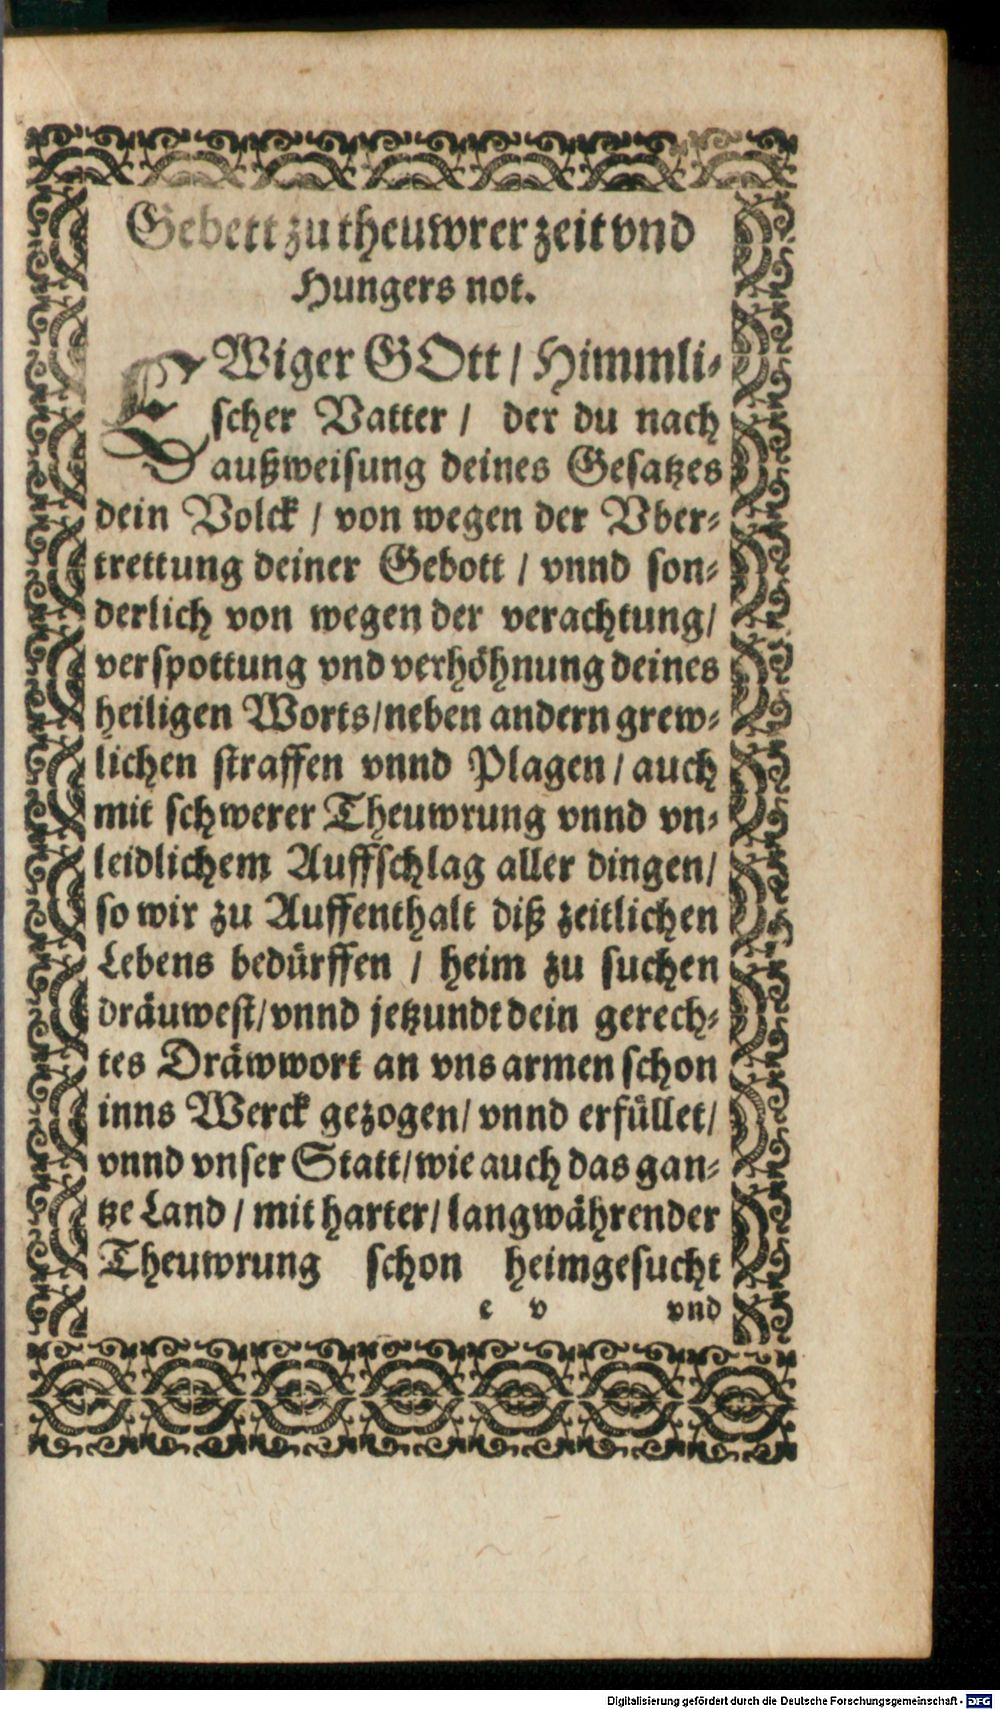 Gebett zu theuwrer zeit vnd
Hungers not.
EWiger GOtt / Himmli-
scher Vatter / der du nach
außweisung deines Gesatzes
dein Volck / von wegen der Vber-
trettung deiner Gebott / vnnd son-
derlich von wegen der verachtung/
verspottung vnd verhöhnung deines
heiligen Worts/neben andern grew-
lichen straffen vnnd Plagen / auch
mit schwerer Theuwrung vnnd vn-
leidlichem Auffschlag aller dingen/
so wir zu Auffenthalt diß zeitlichen
Lebens bedürffen / heim zu suchen
dräuwest/vnnd jetzundt dein gerech-
tes Dräwwort an vns armen schon
inns Werck gezogen/ vnnd erfüllet/
vnnd vnser Statt/wie auch das gan-
tze Land / mit harter/ langwährender
Theuwrung schon heimgesucht
e v vnd
Digitalisierung gefördert durch die Deutsche Forschungsgemeinschaft - DFG